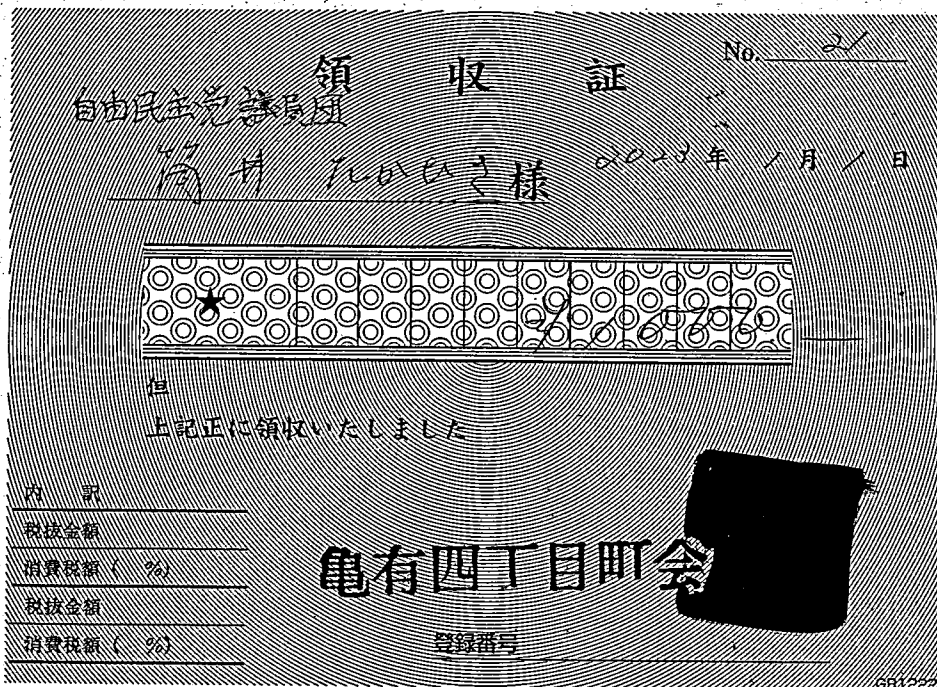 領収証
No. 21
自由民主党議員団
筒井たかひさ様
2023年1月1日
★ ¥1,000
但
上記正に領収いたしました
内訳
税抜金額
消費税額( %)
税抜金額
消費税額( %)
亀有四丁目町会
登録番号